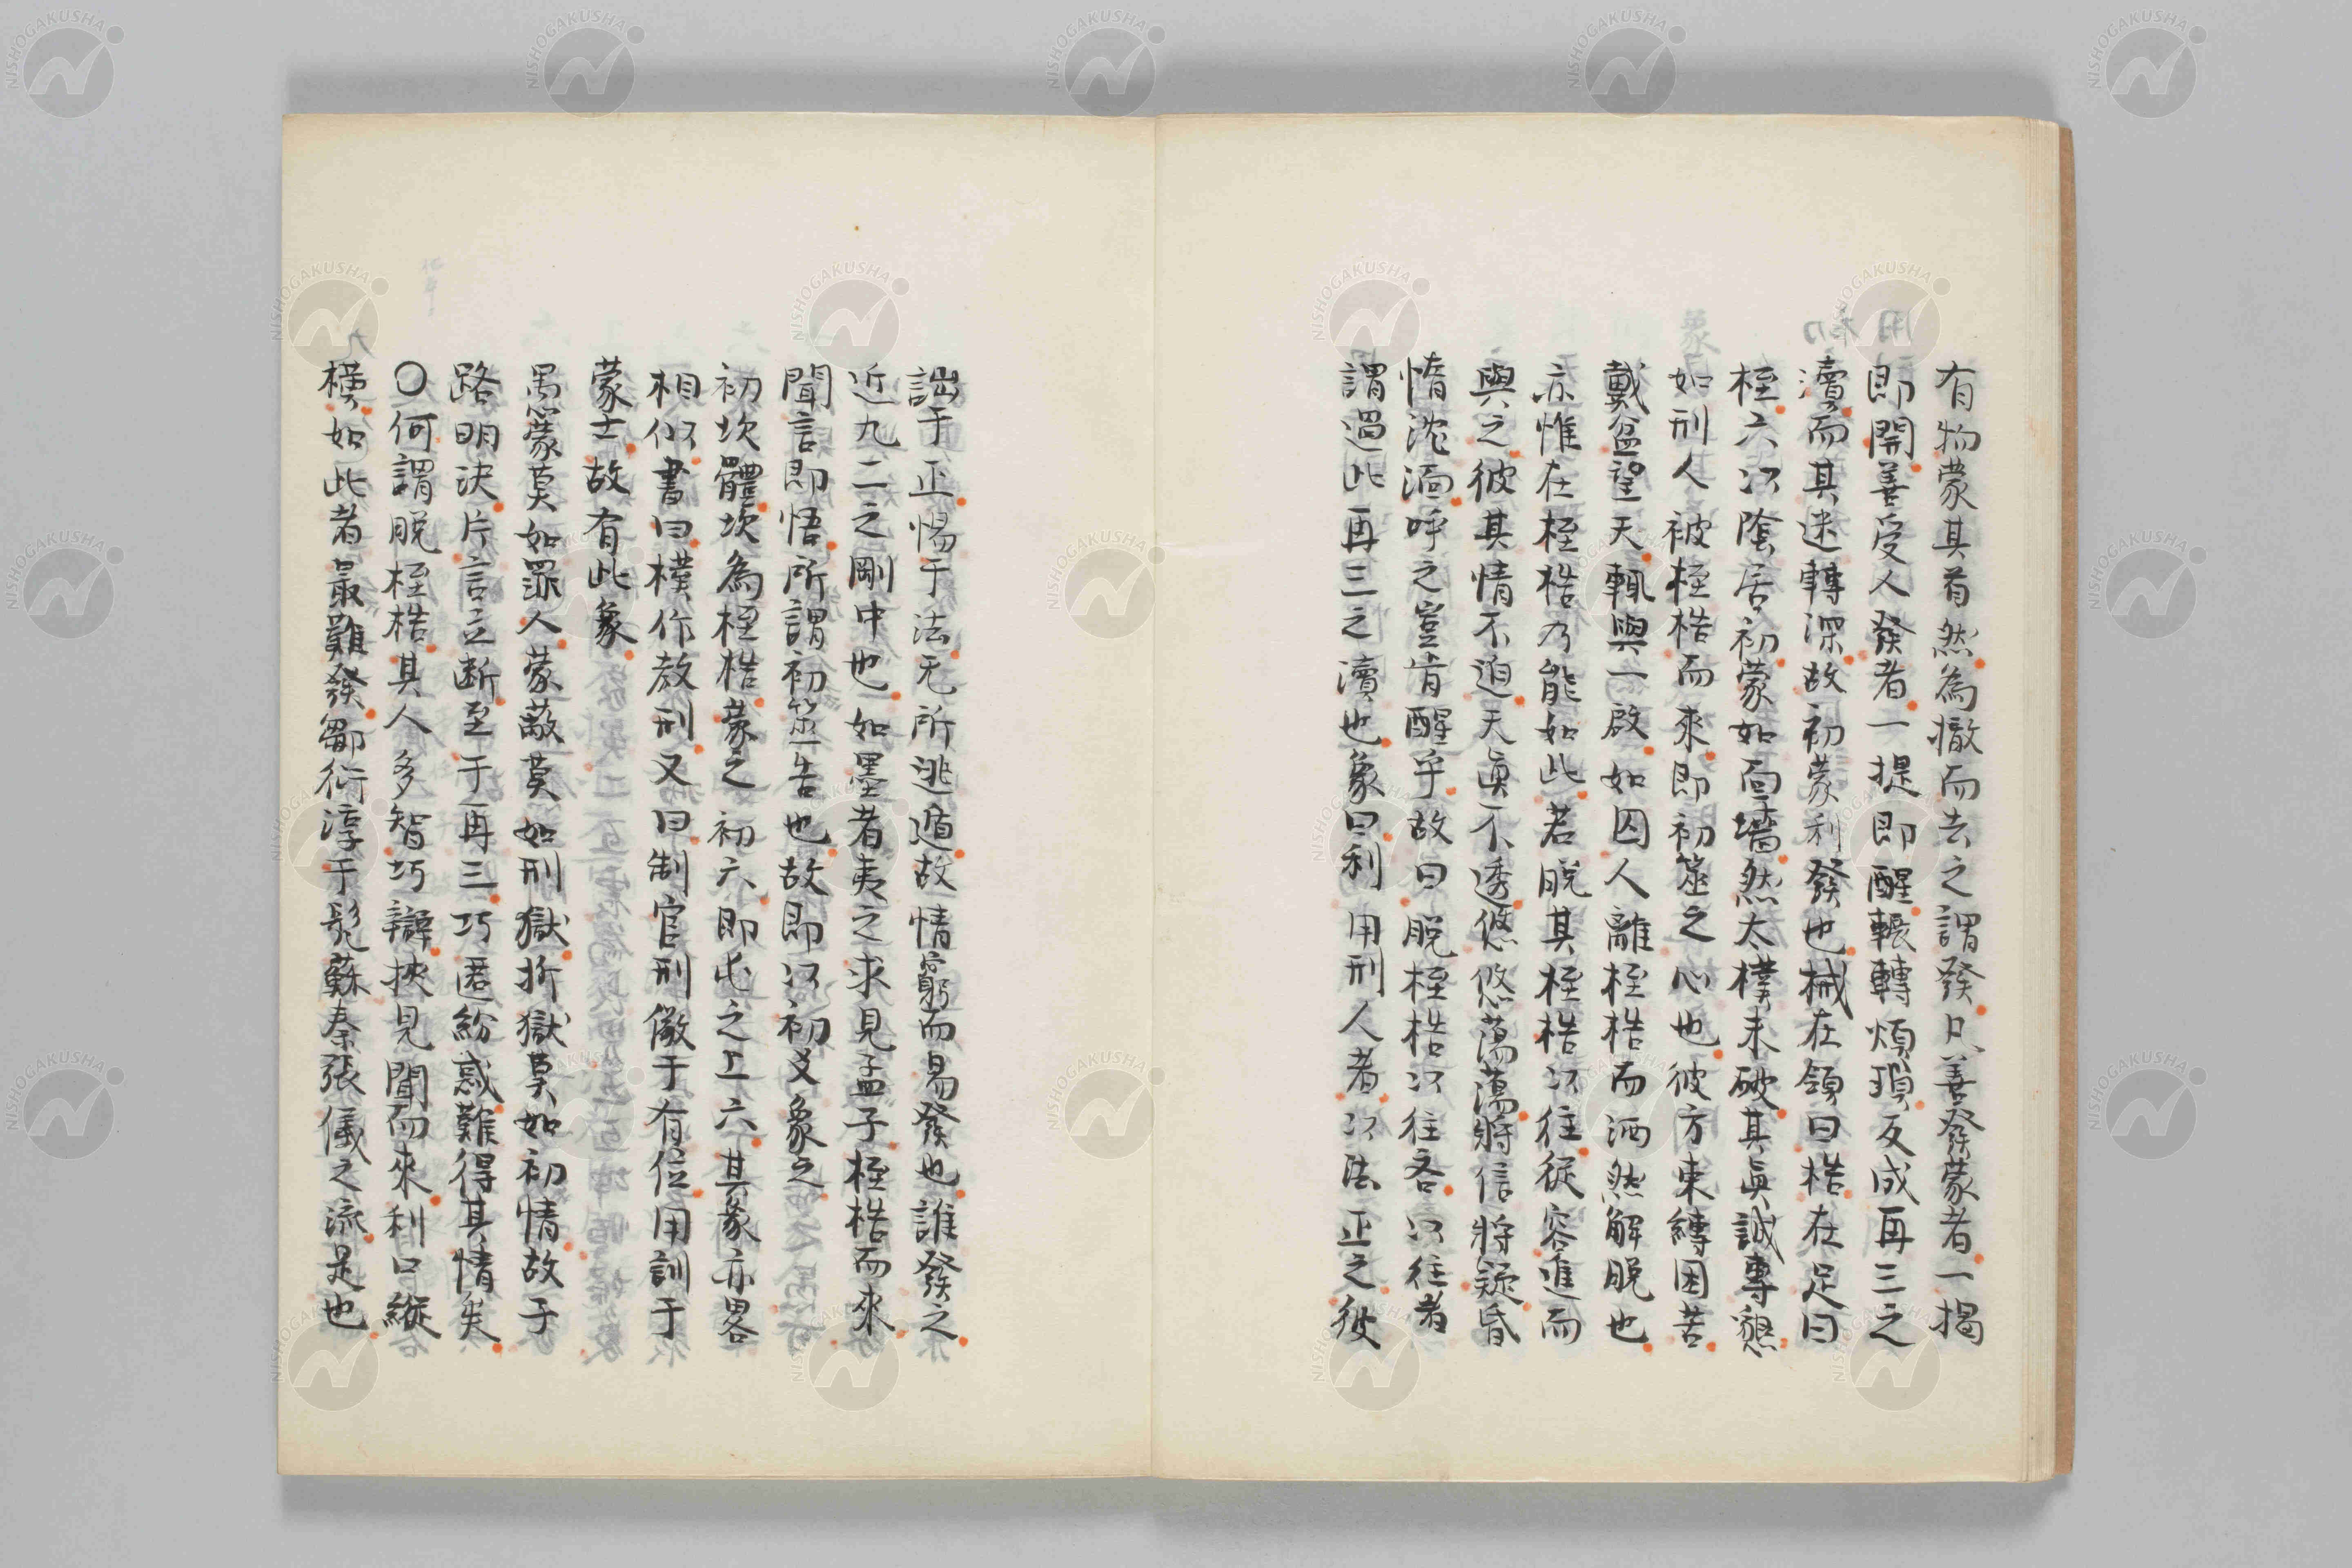 有物蒙其首然為撤而去之謂發凡善發蒙者一揭
即開善受人發者一提即醒輾轉煩瑣反成再三之
瀆而其迷轉深故初蒙利發也械在頸曰梏在足曰
桎六以陰居初蒙如面墻然太樸未破其眞誠專懇
如刑人被桎梏而來即初筮之心也彼方束縛困苦
戴盆望天輒與一啟如囚人離桎梏而洒然解脱也
亦惟在桎梏乃能如此若脱其桎梏以往從容進而
與之彼其情不迫天眞不透悠悠蕩蕩將信將疑昏
惰沈湎呼之豈肯醒乎故曰脱桎梏以往吝以往者
謂過此再三之瀆也象曰利用刑人者以法正之彼
詘于正惕于法无所逃遁故情窮而易發也誰發之
近九二之剛中也如墨者夷之求見孟子桎梏而來
聞言即悟所謂初筮告也故即以初爻象之
初坎體坎為桎梏蒙之初六即屯之上六其象亦畧
相似書曰樸作教刑又曰制官刑儆于有位用訓于
蒙士故有此象
愚蒙莫如罪人蒙蔽莫如刑獄折獄莫如初情故于
路明決片言立断至于再三巧匿紛惑難得其情矣
〇何謂脱桎梏其人多智巧辯挾見聞而來利口縱
橫如此者最難發鄒衍淳于髡蘇秦張儀之流是也
NISHOGAKUSHA